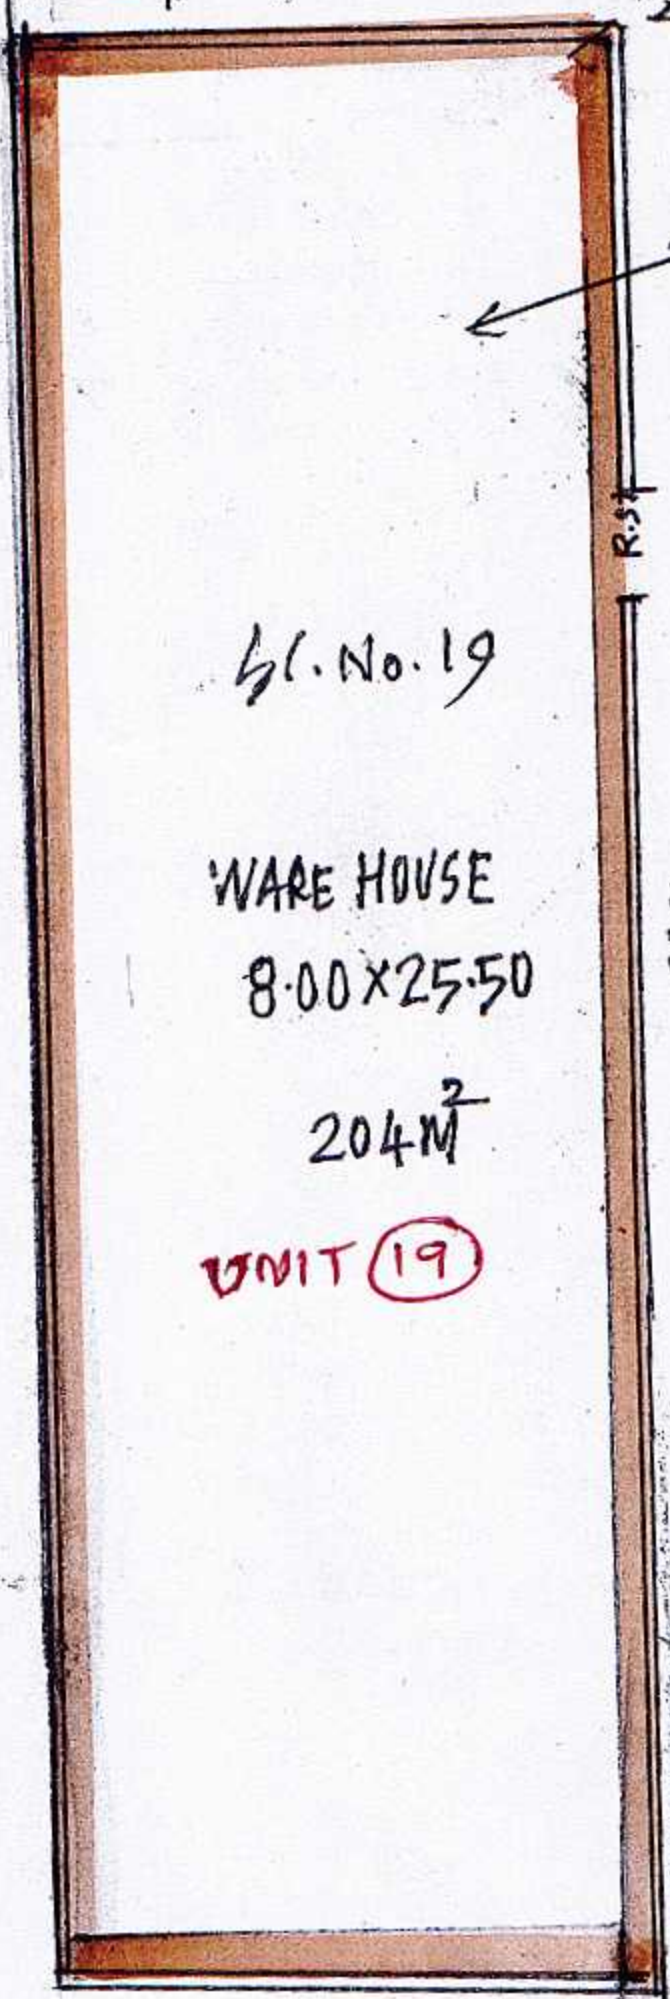 Sl. No. 19
WARE HOUSE
8.00X25.50
204M²
UNIT 19
R.S